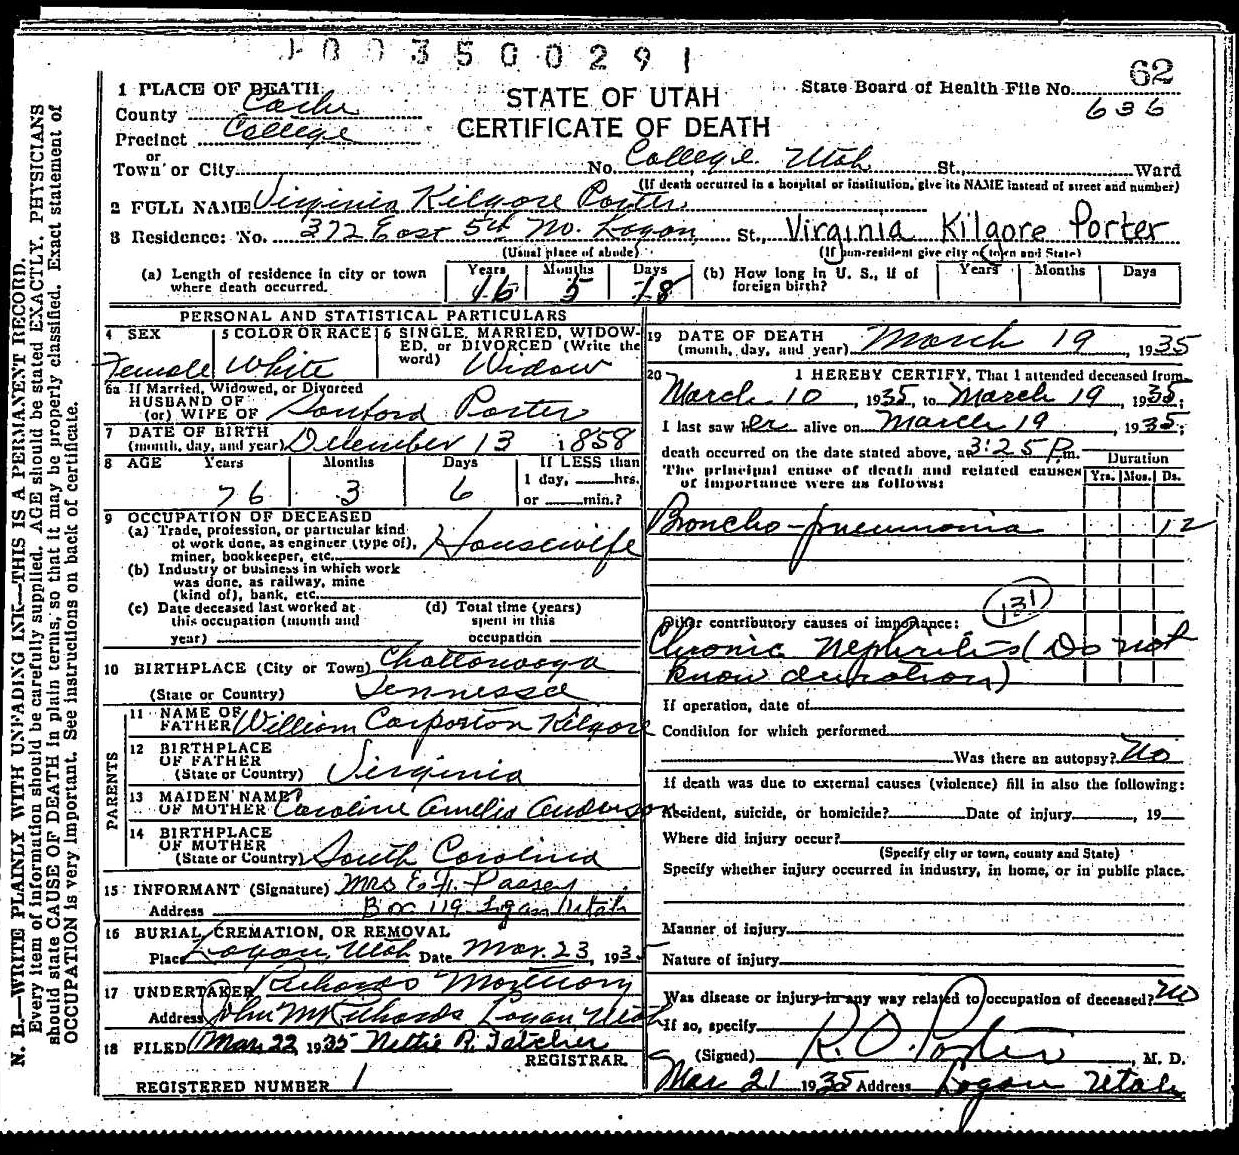 1003500291
62
1 PLACE OF DEATH
STATE OF UTAH
State Board of Health File No. 636
County Cache
CERTIFICATE OF DEATH
Precinct College
or
Town or City No. College Utah St., Ward
(If death occurred in a hospital or institution, give its NAME instead of street and number)
2 FULL NAME Virginia Kilgore Porter
3 Residence: No. 372 East 5th No. Logan St., Virginia Kilgore Porter
(Usual place of abode) (If non-resident give city or town and State)
(a) Length of residence in city or town where death occurred. Years Months 5 Days 18
(b) How long in U. S., if of foreign birth? Years Months Days
PERSONAL AND STATISTICAL PARTICULARS
4 SEX 5 COLOR OR RACE 6 SINGLE, MARRIED, WIDOW-
ED, or DIVORCED (Write the
word) Widow
Female White
6a If Married, Widowed, or Divorced
HUSBAND OF
(or) WIFE OF Sanford Porter
7 DATE OF BIRTH
(month, day, and year) December 13 1858
8 AGE Years Months Days If LESS than
1 day, hrs.
76 3 6 or min.?
9 OCCUPATION OF DECEASED
(a) Trade, profession, or particular kind
of work done, as engineer (type of),
miner, bookkeeper, etc. Housewife
(b) Industry or business in which work
was done, as railway, mine
(kind of), bank, etc.
(c) Date deceased last worked at
this occupation (month and
year)
(d) Total time (years)
spent in this
occupation
10 BIRTHPLACE (City or Town) Chattanooga
(State or Country) Tennessee
PARENTS
11 NAME OF
FATHER William Carposton Kilgore
12 BIRTHPLACE
OF FATHER
(State or Country) Virginia
13 MAIDEN NAME
OF MOTHER Caroline Amelia Anderson
14 BIRTHPLACE
OF MOTHER
(State or Country) South Carolina
15 INFORMANT (Signature) Mrs E. H. Passey
Address Box 119 Logan Utah
16 BURIAL, CREMATION, OR REMOVAL
Place Logan, Utah Date Mar. 23, 1935
17 UNDERTAKER Richards Mortuary
Address John M Richards Logan Utah
18 FILED Mar. 22 1935 Nettie R. Fatcher
REGISTRAR.
REGISTERED NUMBER 1
19 DATE OF DEATH
(month, day, and year) March 19, 1935
20 I HEREBY CERTIFY, That I attended deceased from
March 10, 1935, to March 19, 1935;
I last saw her alive on March 19, 1935;
death occurred on the date stated above, at 3:25 P.m.
The principal cause of death and related causes
of importance were as follows:
Duration
Yrs. Mos. Ds.
Broncho-pneumonia 12
131
Other contributory causes of importance:
Chronic Nephritis (Do not
know duration)
If operation, date of
Condition for which performed
Was there an autopsy? No
If death was due to external causes (violence) fill in also the following:
Accident, suicide, or homicide? Date of injury, 19
Where did injury occur?
(Specify city or town, county and State)
Specify whether injury occurred in industry, in home, or in public place.
Manner of injury
Nature of injury
Was disease or injury in any way related to occupation of deceased? No
If so, specify
(Signed) R. O. Porter, M. D.
Mar 21 1935 Address Logan Utah
N. B.—WRITE PLAINLY WITH UNFADING INK—THIS IS A PERMANENT RECORD.
Every item of information should be carefully supplied. AGE should be stated EXACTLY. PHYSICIANS
should state CAUSE OF DEATH in plain terms, so that it may be properly classified. Exact statement of
OCCUPATION is very important. See instructions on back of certificate.